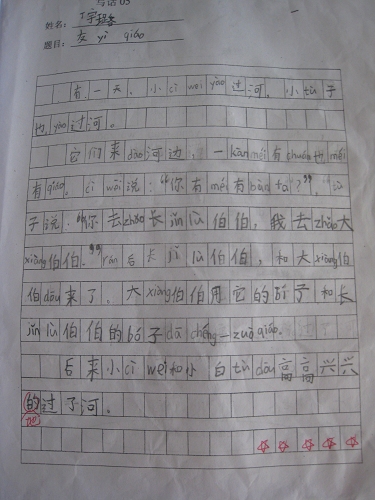 写话03
姓名：
题目：友 yì qiáo
有一天，小cì wei yào过河。小tù子
也yào过河。
它们来dào河边，一kàn méi有chuán也méi
有qiáo。cì wèi说：“你有méi有bàn fa？”，tù
子说：“你去zhǎo长jǐn lù伯伯，我去zhǎo大
xiàng伯伯。”rán后长jǐ lù伯伯，和大xiàng伯
伯dōu来了。大xiàng伯伯用它的bí子和长
jǐn lù伯伯的bó子dā chéng一zuò qiáo.
后来小cì wei和小白tù dōu高高兴兴
的过了河。
地